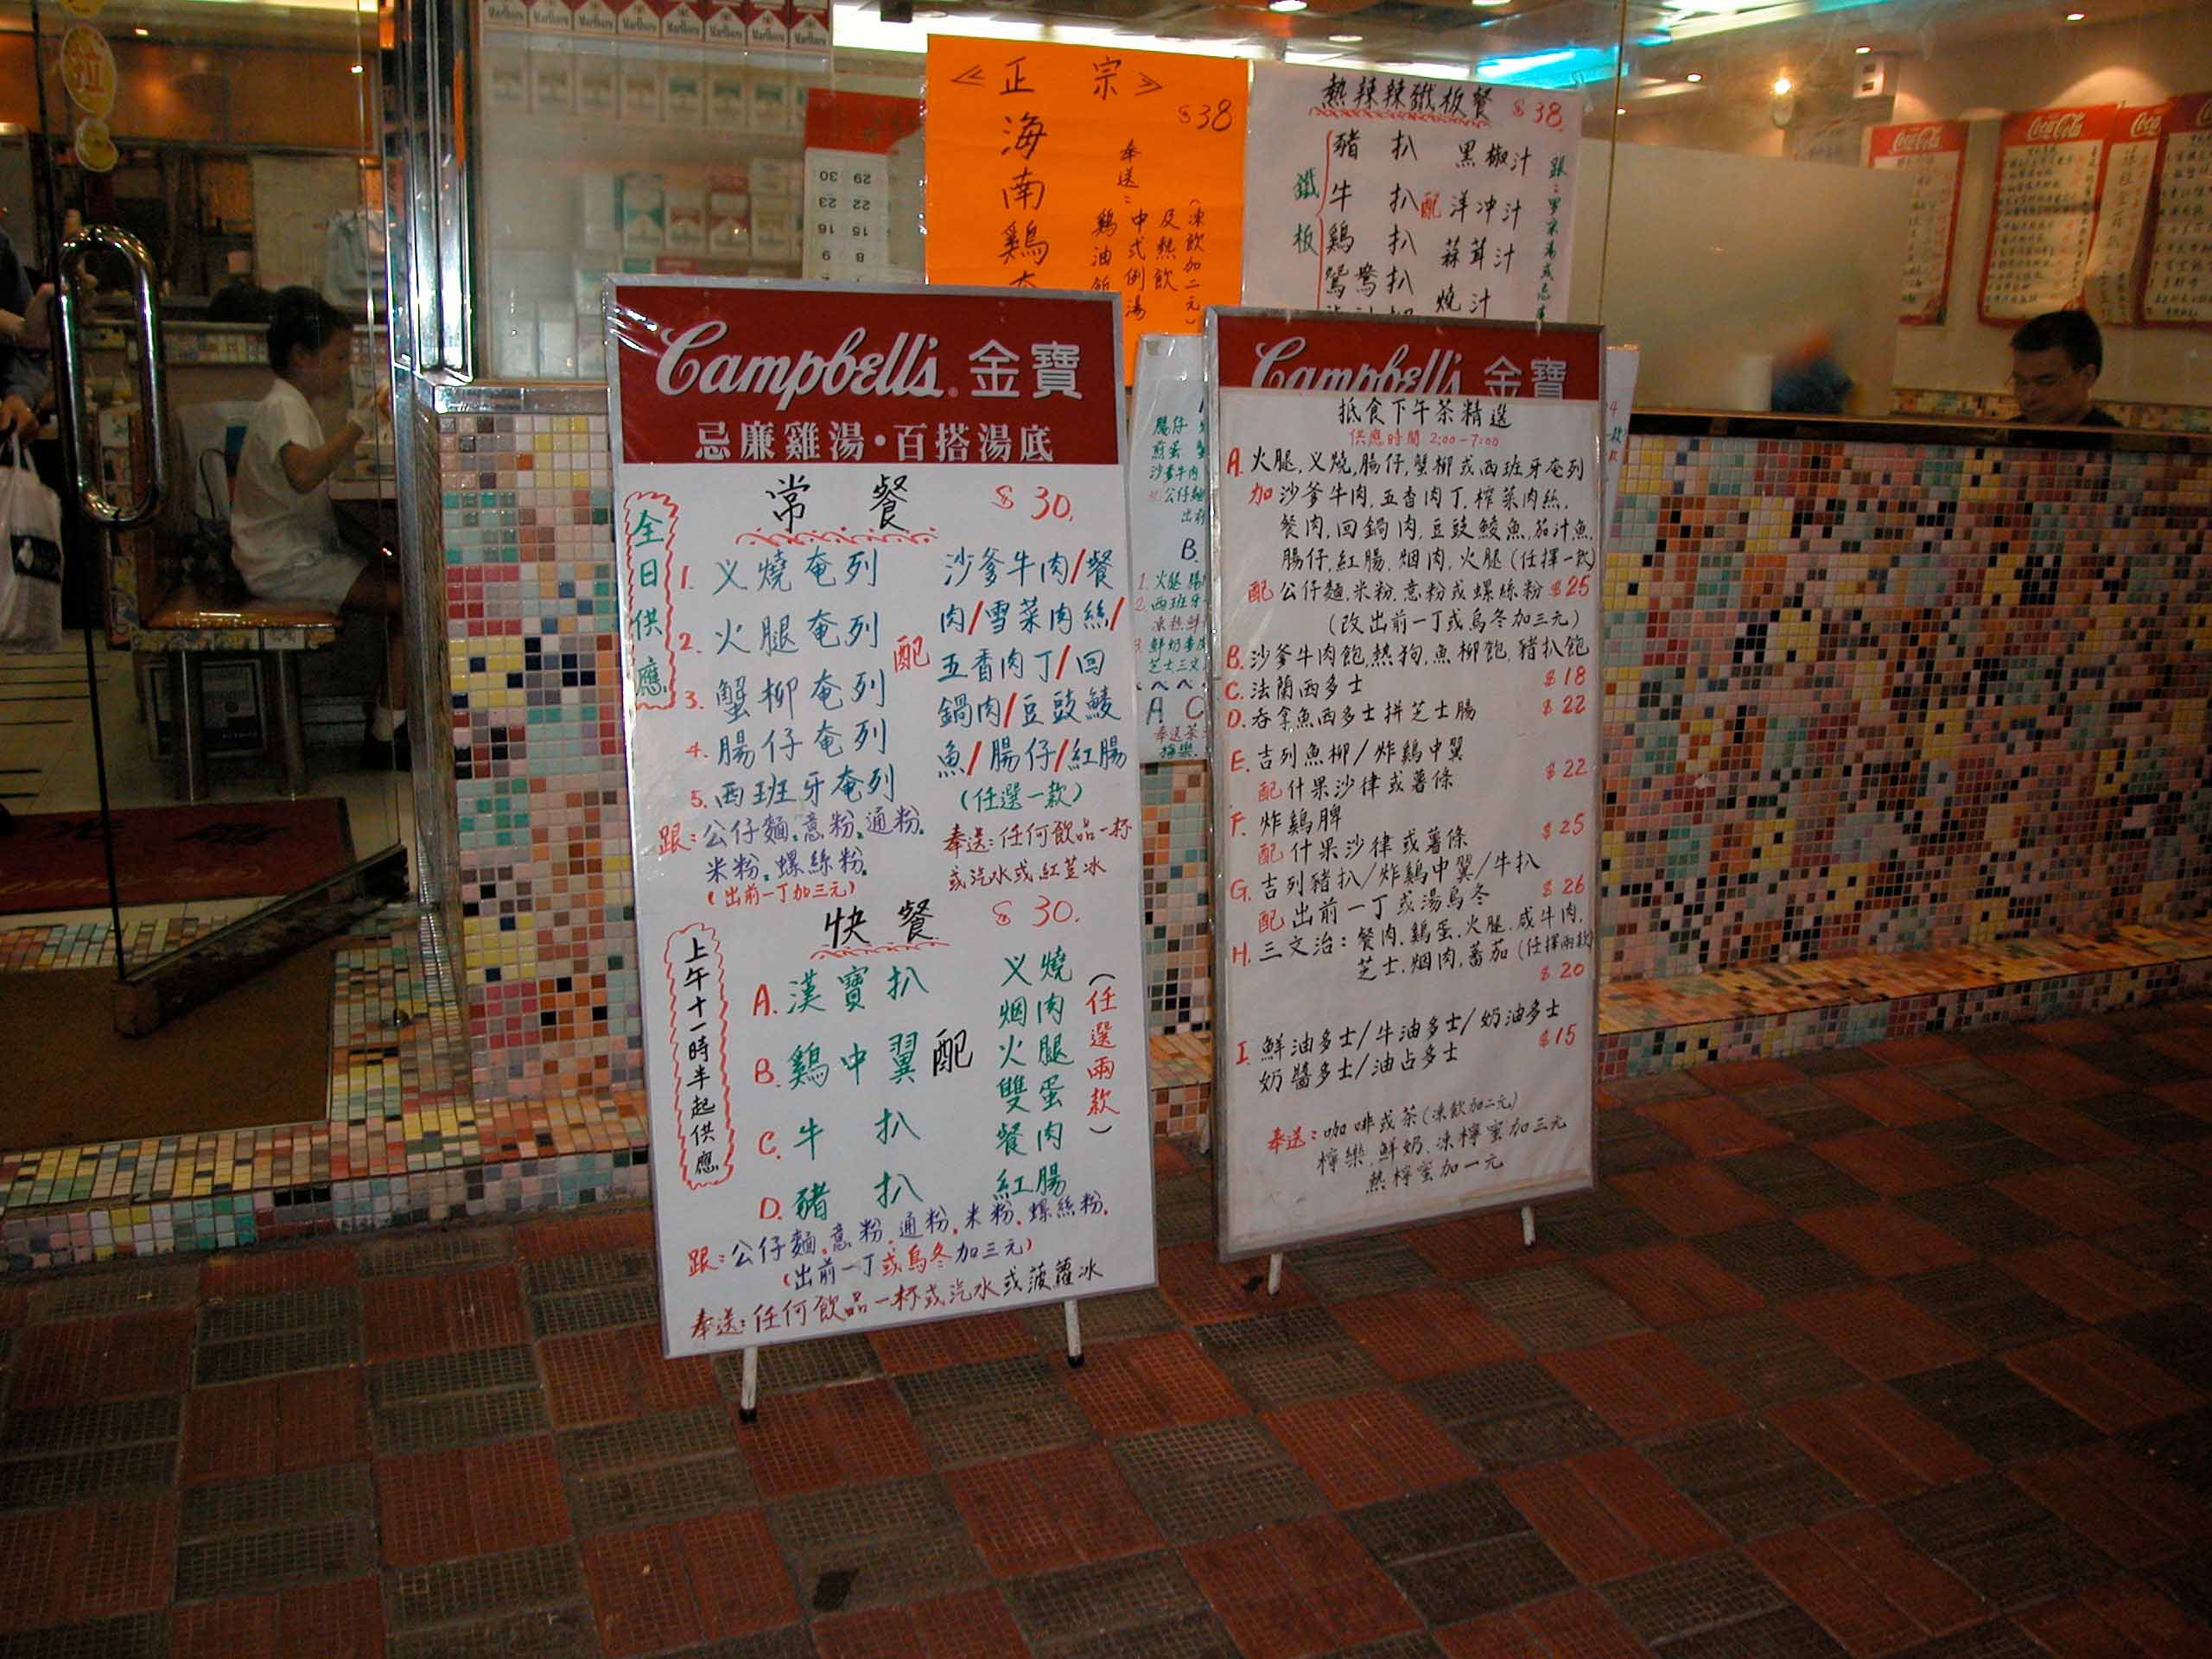 Marlboro Marlboro Marlboro Marlboro Marlboro Marlboro Marlboro
≪正 宗≫
$38
海南鷄
奉送：
鷄油飯
中式例湯
及熱飲
(凍飲加二元)
熱辣辣鐵板餐 $38.
鐵板
豬扒
牛扒
鷄扒
鴛鴦扒
配
黑椒汁
洋冲汁
蒜茸汁
燒汁
Coca-Cola
Coca-Cola
30 29
23 22
16 15
9 8
Campbell's 金寶
忌廉雞湯·百搭湯底
常餐 $30.
全日供應
1. 义燒奄列
2. 火腿奄列
3. 蟹柳奄列
4. 腸仔奄列
5. 西班牙奄列
配
沙爹牛肉/餐
肉/雪菜肉絲/
五香肉丁/回
鍋肉/豆豉鯪
魚/腸仔/紅腸
(任選一款)
跟：公仔麵.意粉.通粉.
米粉.螺絲粉.
(出前一丁加三元)
奉送：任何飲品一杯
或汽水或紅荳冰
快餐 $30.
上午十一時半起供應
A. 漢寶扒
B. 鷄中翼
C. 牛扒
D. 豬扒
配
义燒
烟肉
火腿
雙蛋
餐肉
紅腸
(任選兩款)
跟：公仔麵.意粉.通粉.米粉.螺絲粉.
(出前一丁或烏冬加三元)
奉送：任何飲品一杯或汽水或菠蘿冰
Campbell's 金寶
抵食下午茶精選
供應時間 2:00-7:00
A. 火腿.义燒.腸仔.蟹柳或西班牙奄列
加 沙爹牛肉.五香肉丁.榨菜肉絲.
餐肉.回鍋肉.豆豉鯪魚.茄汁魚.
腸仔.紅腸.烟肉.火腿(任擇一款)
配 公仔麵.米粉.意粉或螺絲粉 $25
(改出前一丁或烏冬加三元)
B. 沙爹牛肉飽.熱狗.魚柳飽.豬扒飽
C. 法蘭西多士 $18
D. 吞拿魚西多士拼芝士腸 $22
E. 吉列魚柳/炸鷄中翼
配什果沙律或薯條 $22
F. 炸鷄脾
配什果沙律或薯條 $25
G. 吉列豬扒/炸鷄中翼/牛扒
配出前一丁或湯烏冬 $26
H. 三文治：餐肉.鷄蛋.火腿.咸牛肉.
芝士.烟肉.蕃茄(任擇兩款)
$20
I. 鮮油多士/牛油多士/奶油多士
奶醬多士/油占多士 $15
奉送：咖啡或茶(凍飲加二元)
檸樂.鮮奶.凍檸蜜加三元
熱檸蜜加一元
腸仔
煎蛋
沙爹牛肉
公仔麵
出前
B.
1. 火腿
2. 西班牙
鮮奶
芝士三文
A C
奉送茶